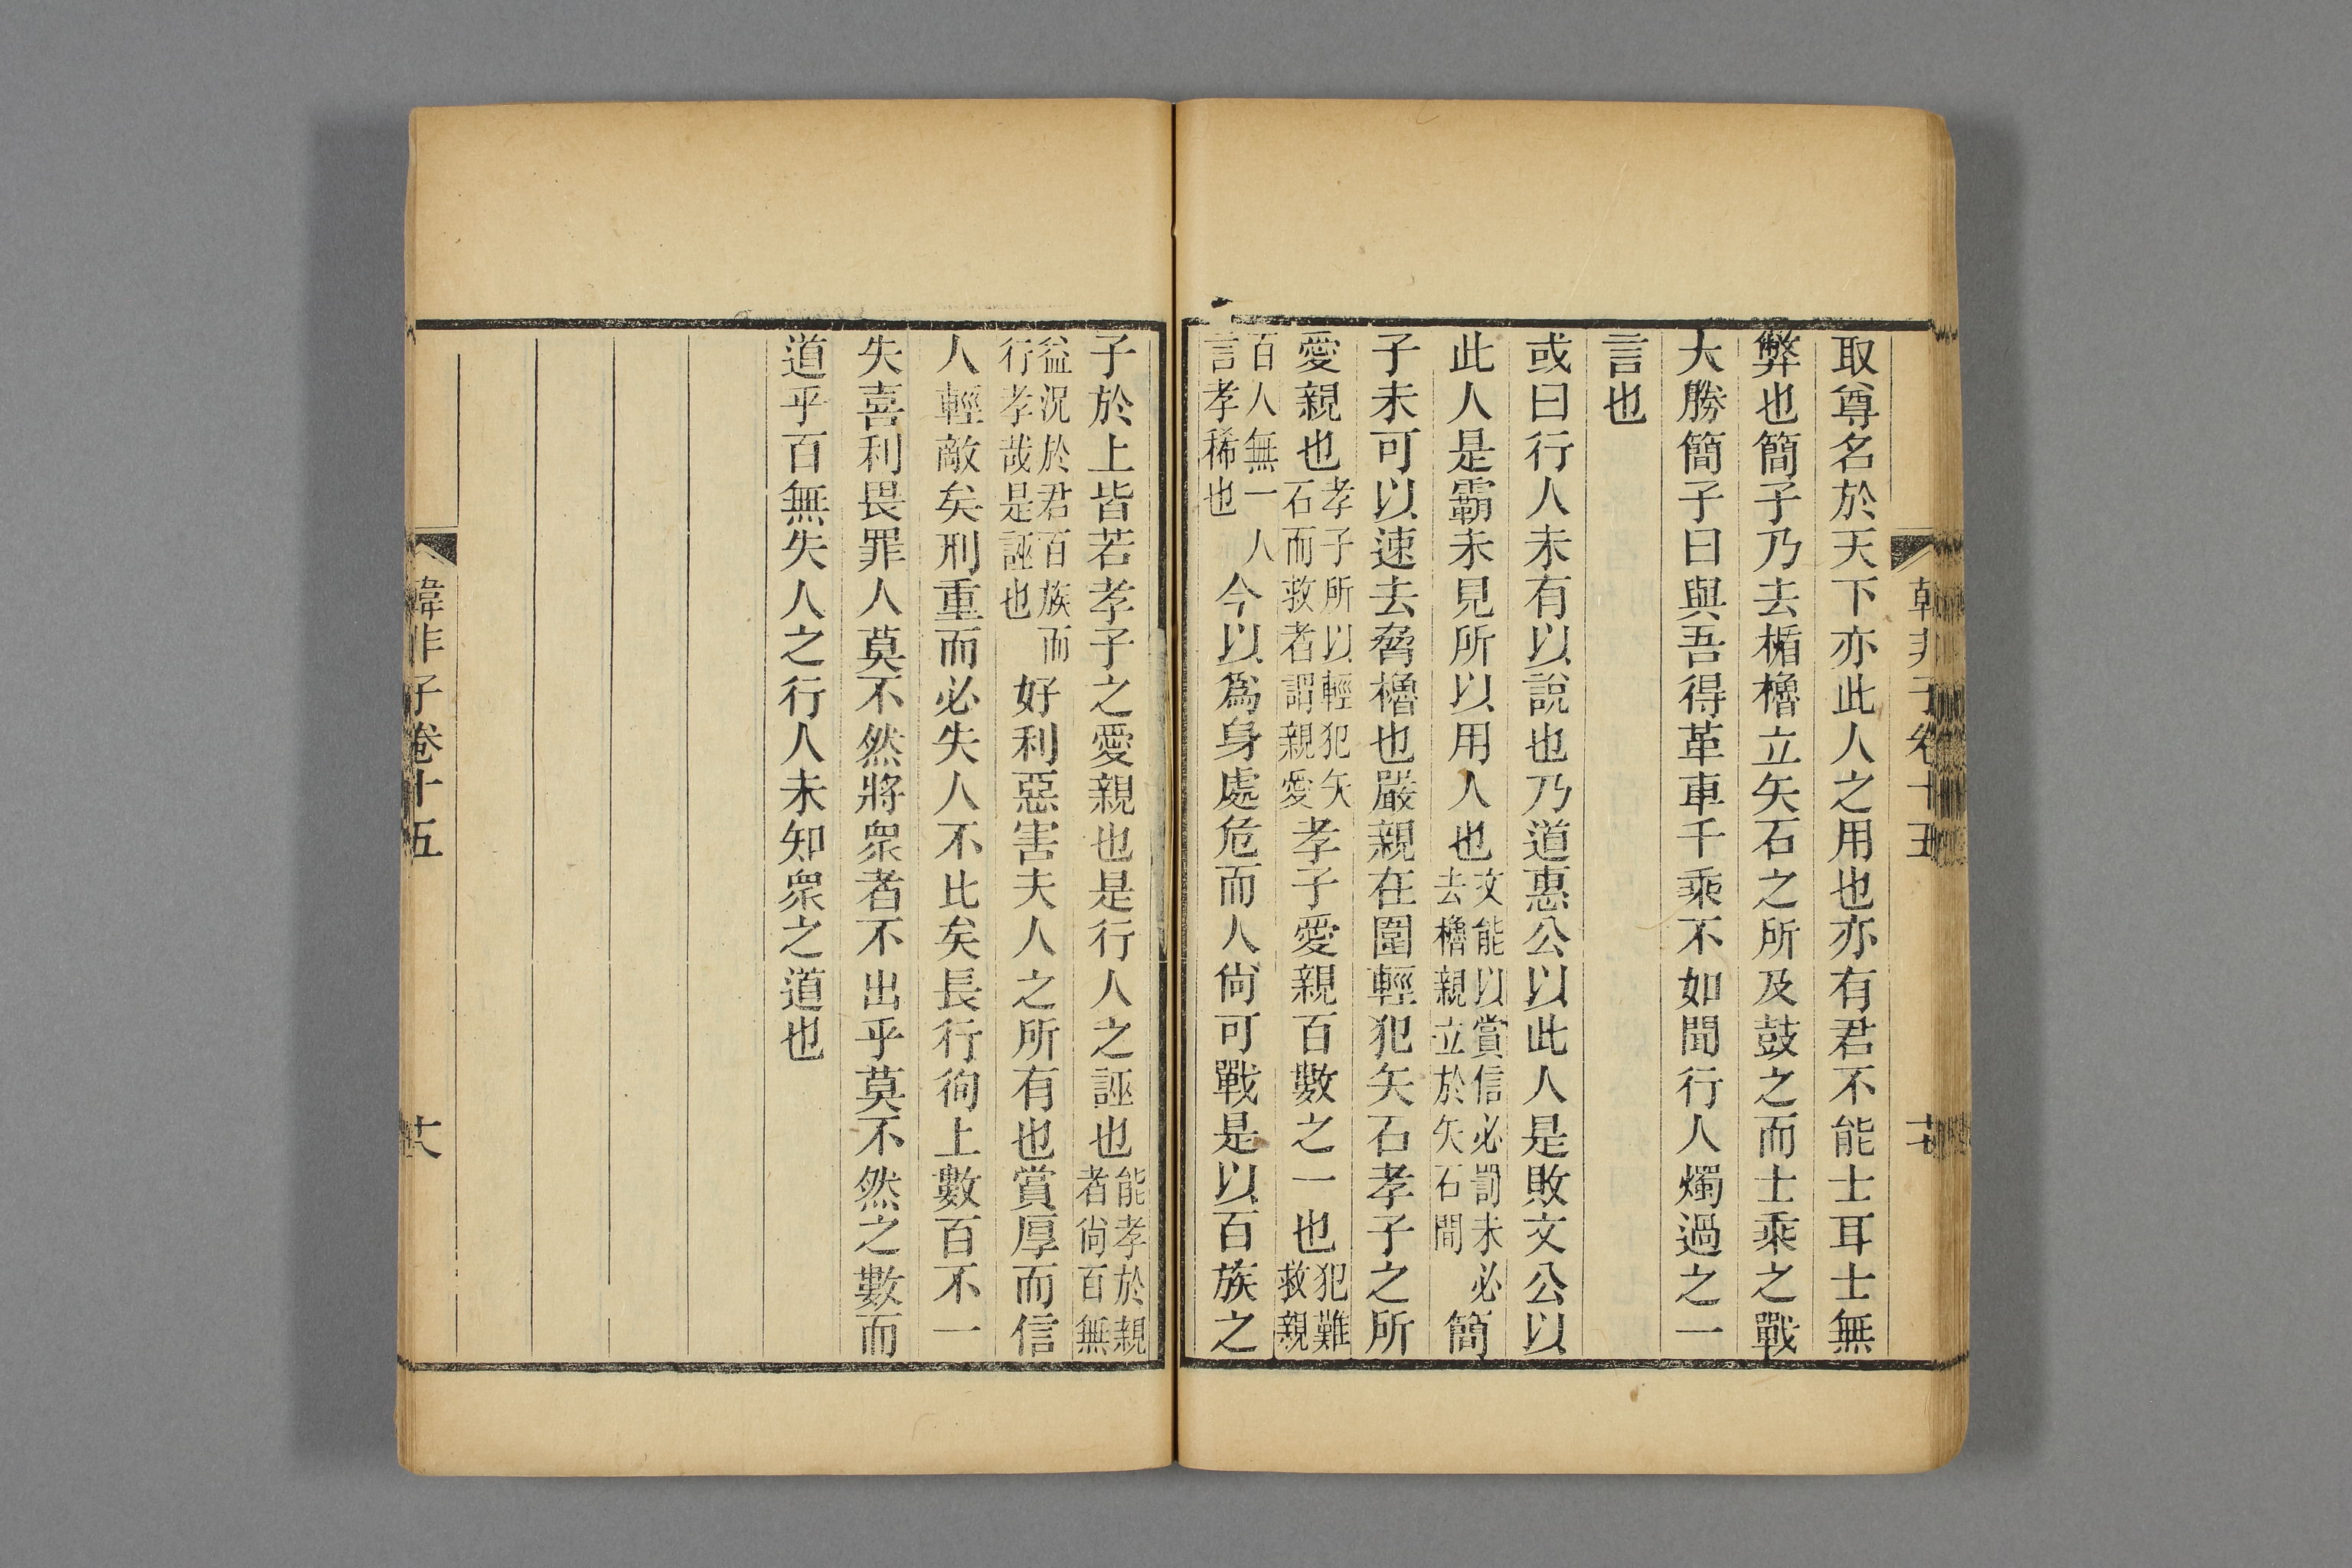 韓非子卷十五
十七
取尊名於天下亦此人之用也亦有君不能士耳士無
弊也簡子乃去楯櫓立矢石之所及鼓之而士乘之戰
大勝簡子曰與吾得革車千乘不如聞行人燭過之一
言也
或曰行人未有以說也乃道惠公以此人是敗文公以
此人是霸未見所以用人也文能以賞信必罰未必去櫓親立於矢石間簡
子未可以速去脅櫓也嚴親在圍輕犯矢石孝子之所
愛親也孝子所以輕犯矢石而救者謂親愛孝子愛親百數之一也犯難救親
百人無一人言孝稀也今以爲身處危而人尙可戰是以百族之
子於上皆若孝子之愛親也是行人之誣也能孝於親者尙百無
益況於君百族而行孝哉是誣也好利惡害夫人之所有也賞厚而信
人輕敵矣刑重而必失人不比矣長行徇上數百不一
失喜利畏罪人莫不然將衆者不出乎莫不然之數而
道乎百無失人之行人未知衆之道也
韓非子卷十五
十八